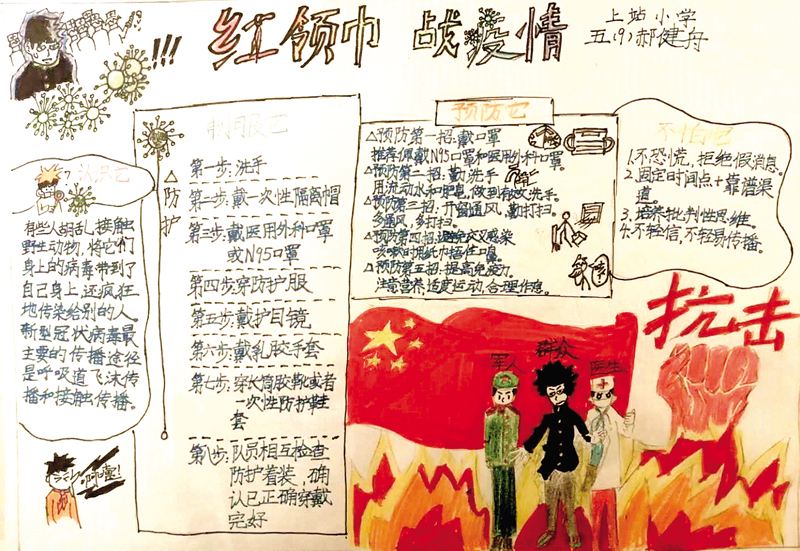 !!! 红领巾 战疫情
上站小学
五(9)郝健舟
认识它
有些人胡乱接触
野生动物,将它们
身上的病毒带到了
自己身上,还疯狂
地传染给别的人。
新型冠状病毒最
主要的传播途径
是呼吸道飞沫传
播和接触传播。
啊嚏!
△防护
制服它
第一步:洗手
第二步:戴一次性隔离帽
第三步:戴医用外科口罩
或N95口罩
第四步:穿防护服
第五步:戴护目镜
第六步:戴乳胶手套
第七步:穿长筒胶靴或者
一次性防护鞋
套
第八步:队员相互检查
防护着装,确
认已正确穿戴
完好
预防它
△预防第一招:戴口罩
推荐佩戴N95口罩和医用外科口罩。
△预防第二招:勤洗手
用流动水和肥皂,做到有效洗手。
△预防第三招:开窗通风,勤打扫。
多通风,多打扫。
△预防第四招:避免交叉感染
咳嗽时用纸巾捂住口鼻。
△预防第五招:提高免疫力。
注意营养,适度运动,合理作息。
不怕它
1.不恐慌,拒绝假消息。
2.固定时间点+靠谱渠
道。
3.培养批判性思维。
4.不轻信,不轻易传播。
抗击
军人
群众
医生